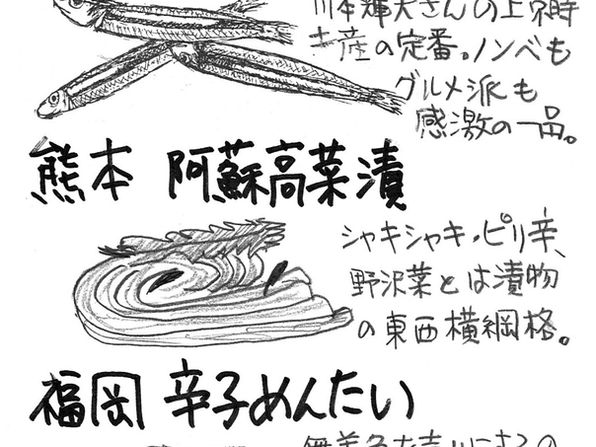 川本輝夫さんの上京時
土産の定番。ノンベも
グルメ派も
感激の一品。
熊本 阿蘇高菜漬
シャキシャキ、ピリ辛、
野沢菜とは漬物
の東西横綱格。
福岡 辛子めんたい